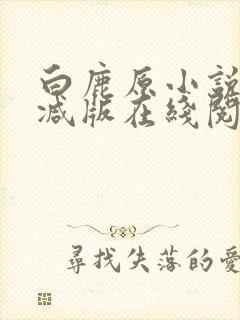 白鹿原小説
減版在綫閱
尋找失落的愛